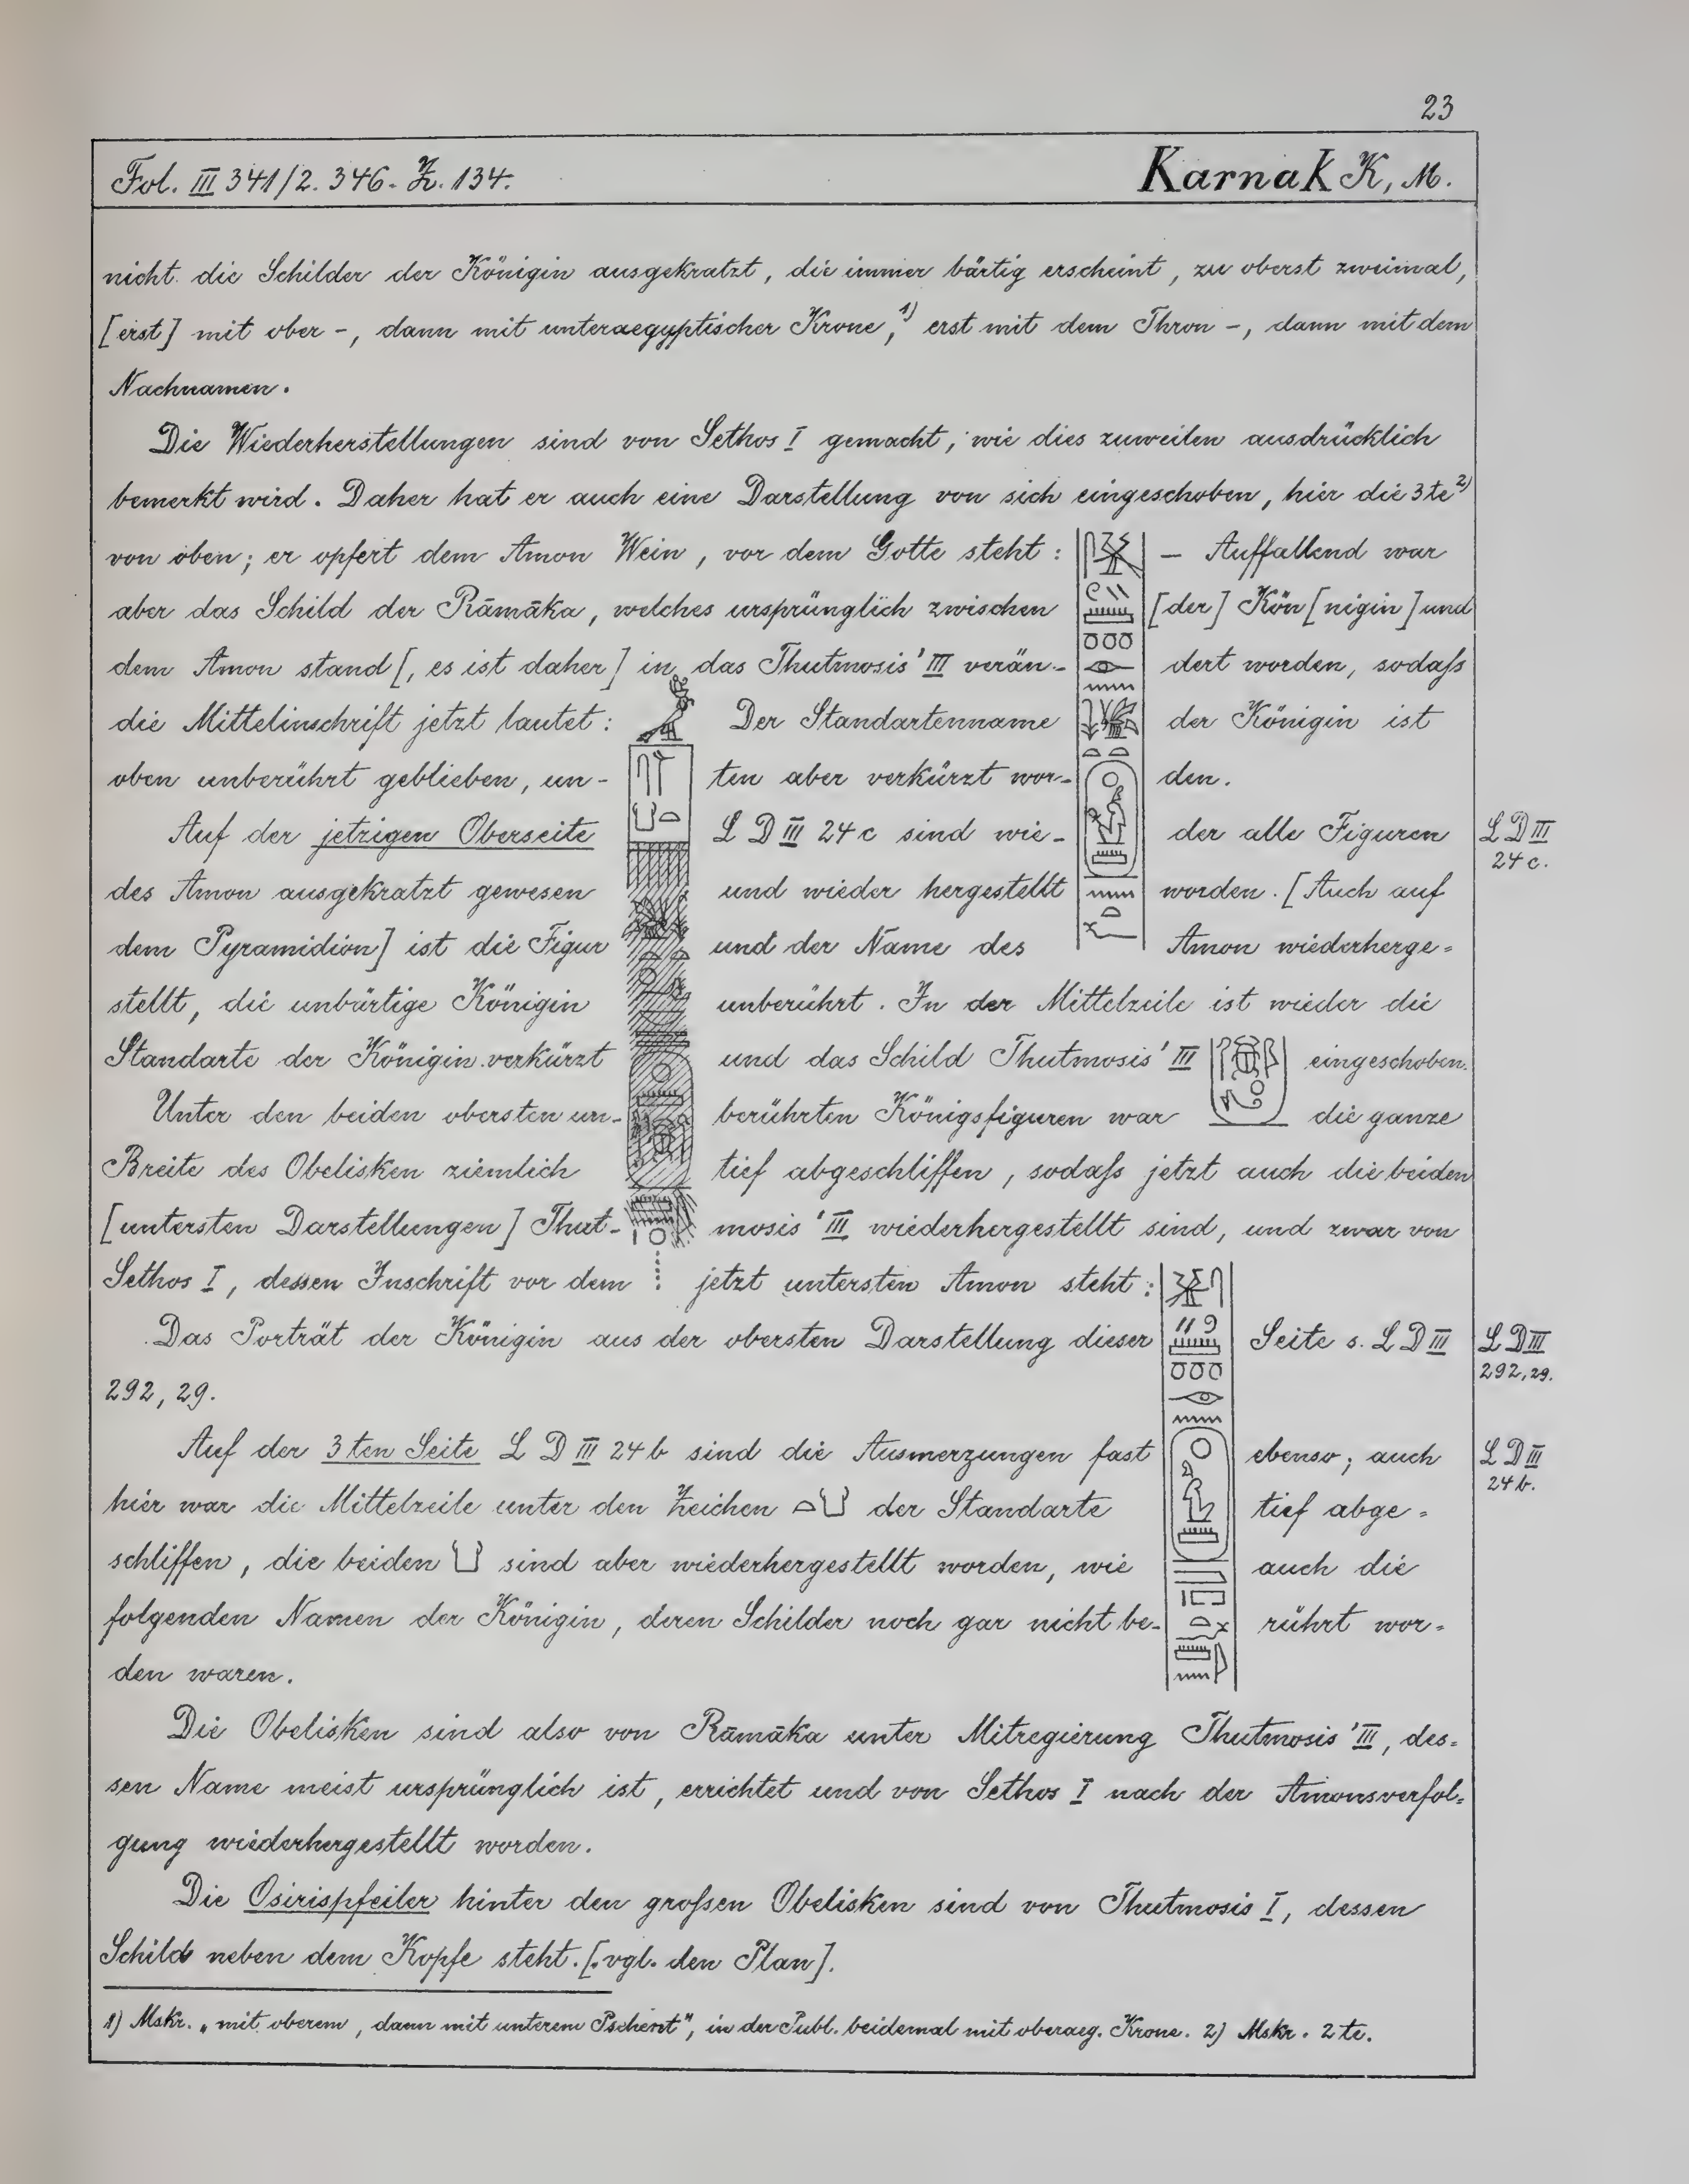 23
Fol. III 341/2. 346. Z. 134. Karnak K, M.
nicht die Schilder der Königin ausgekratzt, die immer bärtig erscheint, zu oberst zweimal,
[erst] mit ober-, dann mit unteraegyptischer Krone,1) erst mit dem Thron-, dann mit dem
Nachnamen.
Die Wiederherstellungen sind von Sethos I gemacht, wie dies zuweilen ausdrücklich
bemerkt wird. Daher hat er auch eine Darstellung von sich eingeschoben, hier die 3te2)
von oben; er opfert dem Amon Wein, vor dem Gotte steht: — Auffallend war
aber das Schild der Rāmāka, welches ursprünglich zwischen [der] Kön[nigin] und
dem Amon stand[, es ist daher] in das Thutmosis' III verän- dert worden, sodaſs
die Mittelinschrift jetzt lautet: Der Standartenname der Königin ist
oben unberührt geblieben, un- ten aber verkürzt wor- den.
Auf der jetzigen Oberseite L D III 24c sind wie- der alle Figuren L D III
24c.
des Amon ausgekratzt gewesen und wieder hergestellt worden. [Auch auf
dem Pyramidion] ist die Figur und der Name des Amon wiederherge-
stellt, die unbärtige Königin unberührt. In der Mittelzeile ist wieder die
Standarte der Königin verkürzt und das Schild Thutmosis' III eingeschoben.
Unter den beiden obersten un- berührten Königsfiguren war die ganze
Breite des Obelisken ziemlich tief abgeschliffen, sodaſs jetzt auch die beiden
[untersten Darstellungen] Thut- mosis' III wiederhergestellt sind, und zwar von
Sethos I, dessen Inschrift vor dem jetzt untersten Amon steht:
Das Porträt der Königin aus der obersten Darstellung dieser Seite s. L D III L D III
292, 29.
292, 29.
Auf der 3ten Seite L D III 24b sind die Ausmerzungen fast ebenso; auch L D III
24b.
hier war die Mittelzeile unter den Zeichen 𓏏𓂓 der Standarte tief abge-
schliffen, die beiden 𓂓 sind aber wiederhergestellt worden, wie auch die
folgenden Namen der Königin, deren Schilder noch gar nicht be- rührt wor-
den waren.
Die Obelisken sind also von Rāmāka unter Mitregierung Thutmosis' III, des-
sen Name meist ursprünglich ist, errichtet und von Sethos I nach der Amonsverfol-
gung wiederhergestellt worden.
Die Osirispfeiler hinter den groſsen Obelisken sind von Thutmosis I, dessen
Schild neben dem Kopfe steht. [vgl. den Plan].
1) Mskr. „mit oberem, dann mit unterem Pschent", in der Publ. beidemal mit oberaeg. Krone. 2) Mskr. 2te.